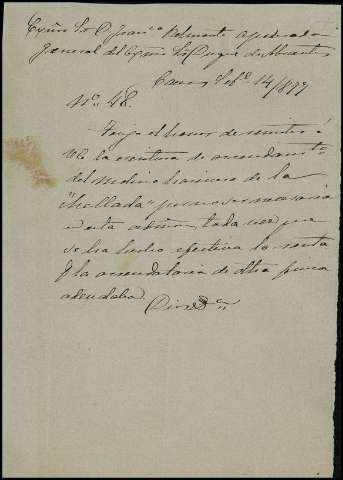 Exmo Sr D. Franco Belmonte apoderado
general del Exmo Sr Duque de Abrantes
Febo 14/899
No. 48.
Tengo el honor de remitir á
VE la escritura de arrendamto
del Molino harinero de la
"Mellada" por no ser necesaria
en esta admon toda vez que
se ha hecho efectiva la renta
q la arrendataria de dha finca
adeudaba.
Dios &a